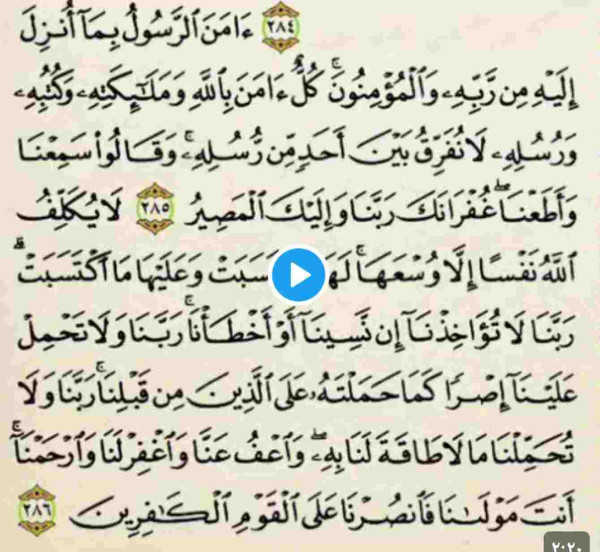 ﴿٢٨٤﴾ ءَامَنَ ٱلرَّسُولُ بِمَآ أُنزِلَ
إِلَيْهِ مِن رَّبِّهِۦ وَٱلْمُؤْمِنُونَ ۚ كُلٌّ ءَامَنَ بِٱللَّهِ وَمَلَٰٓئِكَتِهِۦ وَكُتُبِهِۦ
وَرُسُلِهِۦ لَا نُفَرِّقُ بَيْنَ أَحَدٍ مِّن رُّسُلِهِۦ ۚ وَقَالُوا۟ سَمِعْنَا
وَأَطَعْنَا ۖ غُفْرَانَكَ رَبَّنَا وَإِلَيْكَ ٱلْمَصِيرُ ﴿٢٨٥﴾ لَا يُكَلِّفُ
ٱللَّهُ نَفْسًا إِلَّا وُسْعَهَا ۚ وَعَلَيْهَا مَا ٱكْتَسَبَتْ ۗ
رَبَّنَا لَا تُؤَاخِذْنَآ إِن نَّسِينَآ أَوْ أَخْطَأْنَا ۚ رَبَّنَا وَلَا تَحْمِلْ
عَلَيْنَآ إِصْرًا كَمَا حَمَلْتَهُۥ عَلَى ٱلَّذِينَ مِن قَبْلِنَا ۚ رَبَّنَا وَلَا
تُحَمِّلْنَا مَا لَا طَاقَةَ لَنَا بِهِۦ ۖ وَٱعْفُ عَنَّا وَٱغْفِرْ لَنَا وَٱرْحَمْنَآ ۚ
أَنتَ مَوْلَىٰنَا فَٱنصُرْنَا عَلَى ٱلْقَوْمِ ٱلْكَٰفِرِينَ ﴿٢٨٦﴾
٢:٢٠